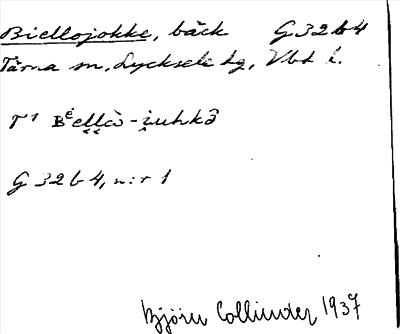 Biellojokke, bäck G 32 b 4
Tärna sn, Lycksele lg, Vbt l.
G 32 b 4, n:r 1
Björn Collinder 1937